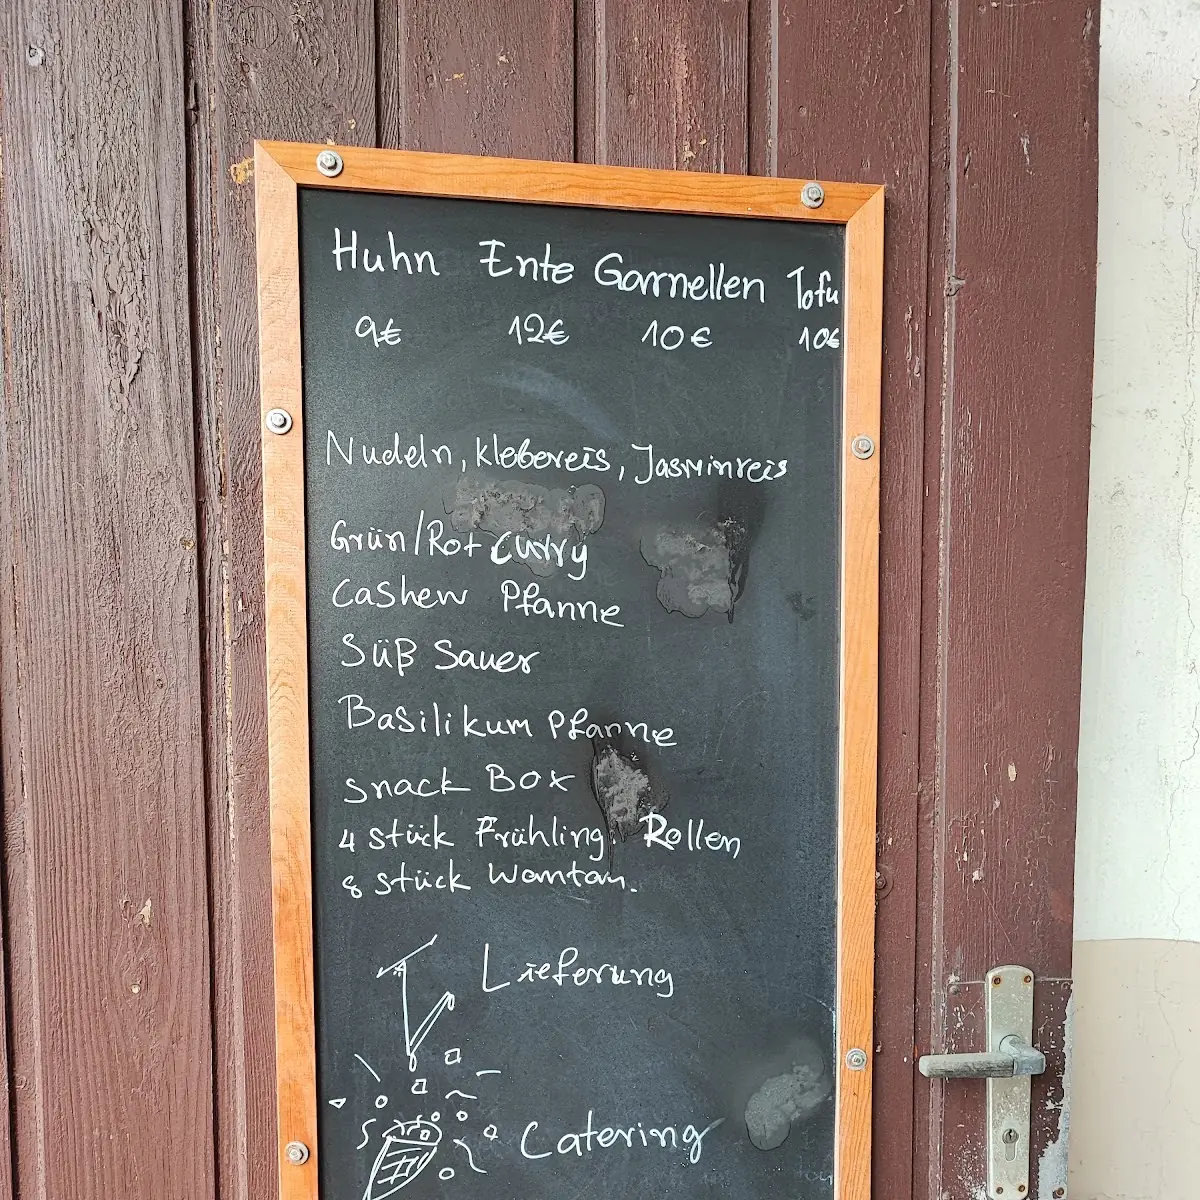 Huhn Ente Garnellen Tofu
9€ 12€ 10€ 10€
Nudeln, Klebereis, Jasminreis
Grün/Rot Curry
Cashew Pfanne
Süß Sauer
Basilikum Pfanne
snack Box
4 Stück Frühling. Rollen
8 Stück Wamtan.
Lieferung
Catering